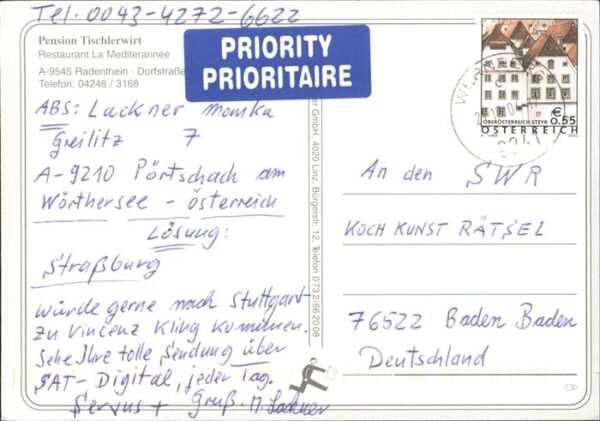 Tel. 0043-4272-6622
Pension Tischlerwirt
Restaurant La Mediteranneé
A-9545 Radenthein - Dorfstraße
Telefon: 04246 / 3168
PRIORITY
PRIORITAIRE
ABS: Lackner Monika
Greilitz 7
A-9210 Pörtschach am
Wörthersee - Österreich
Lösung:
Straßburg
würde gerne nach Stuttgart-
zu Vincenz Kling kommen.
Sehe Ihre tolle Sendung über
SAT-Digital, jeden Tag.
Servus + Gruß M. Lackner
GmbH, 4020 Linz, Bürgerstr. 12, Telefon 0732/662008
€ 0.55
OBERÖSTERREICH STEYR
ÖSTERREICH
An den SWR
KOCH KUNST RÄTSEL
76522 Baden Baden
Deutschland